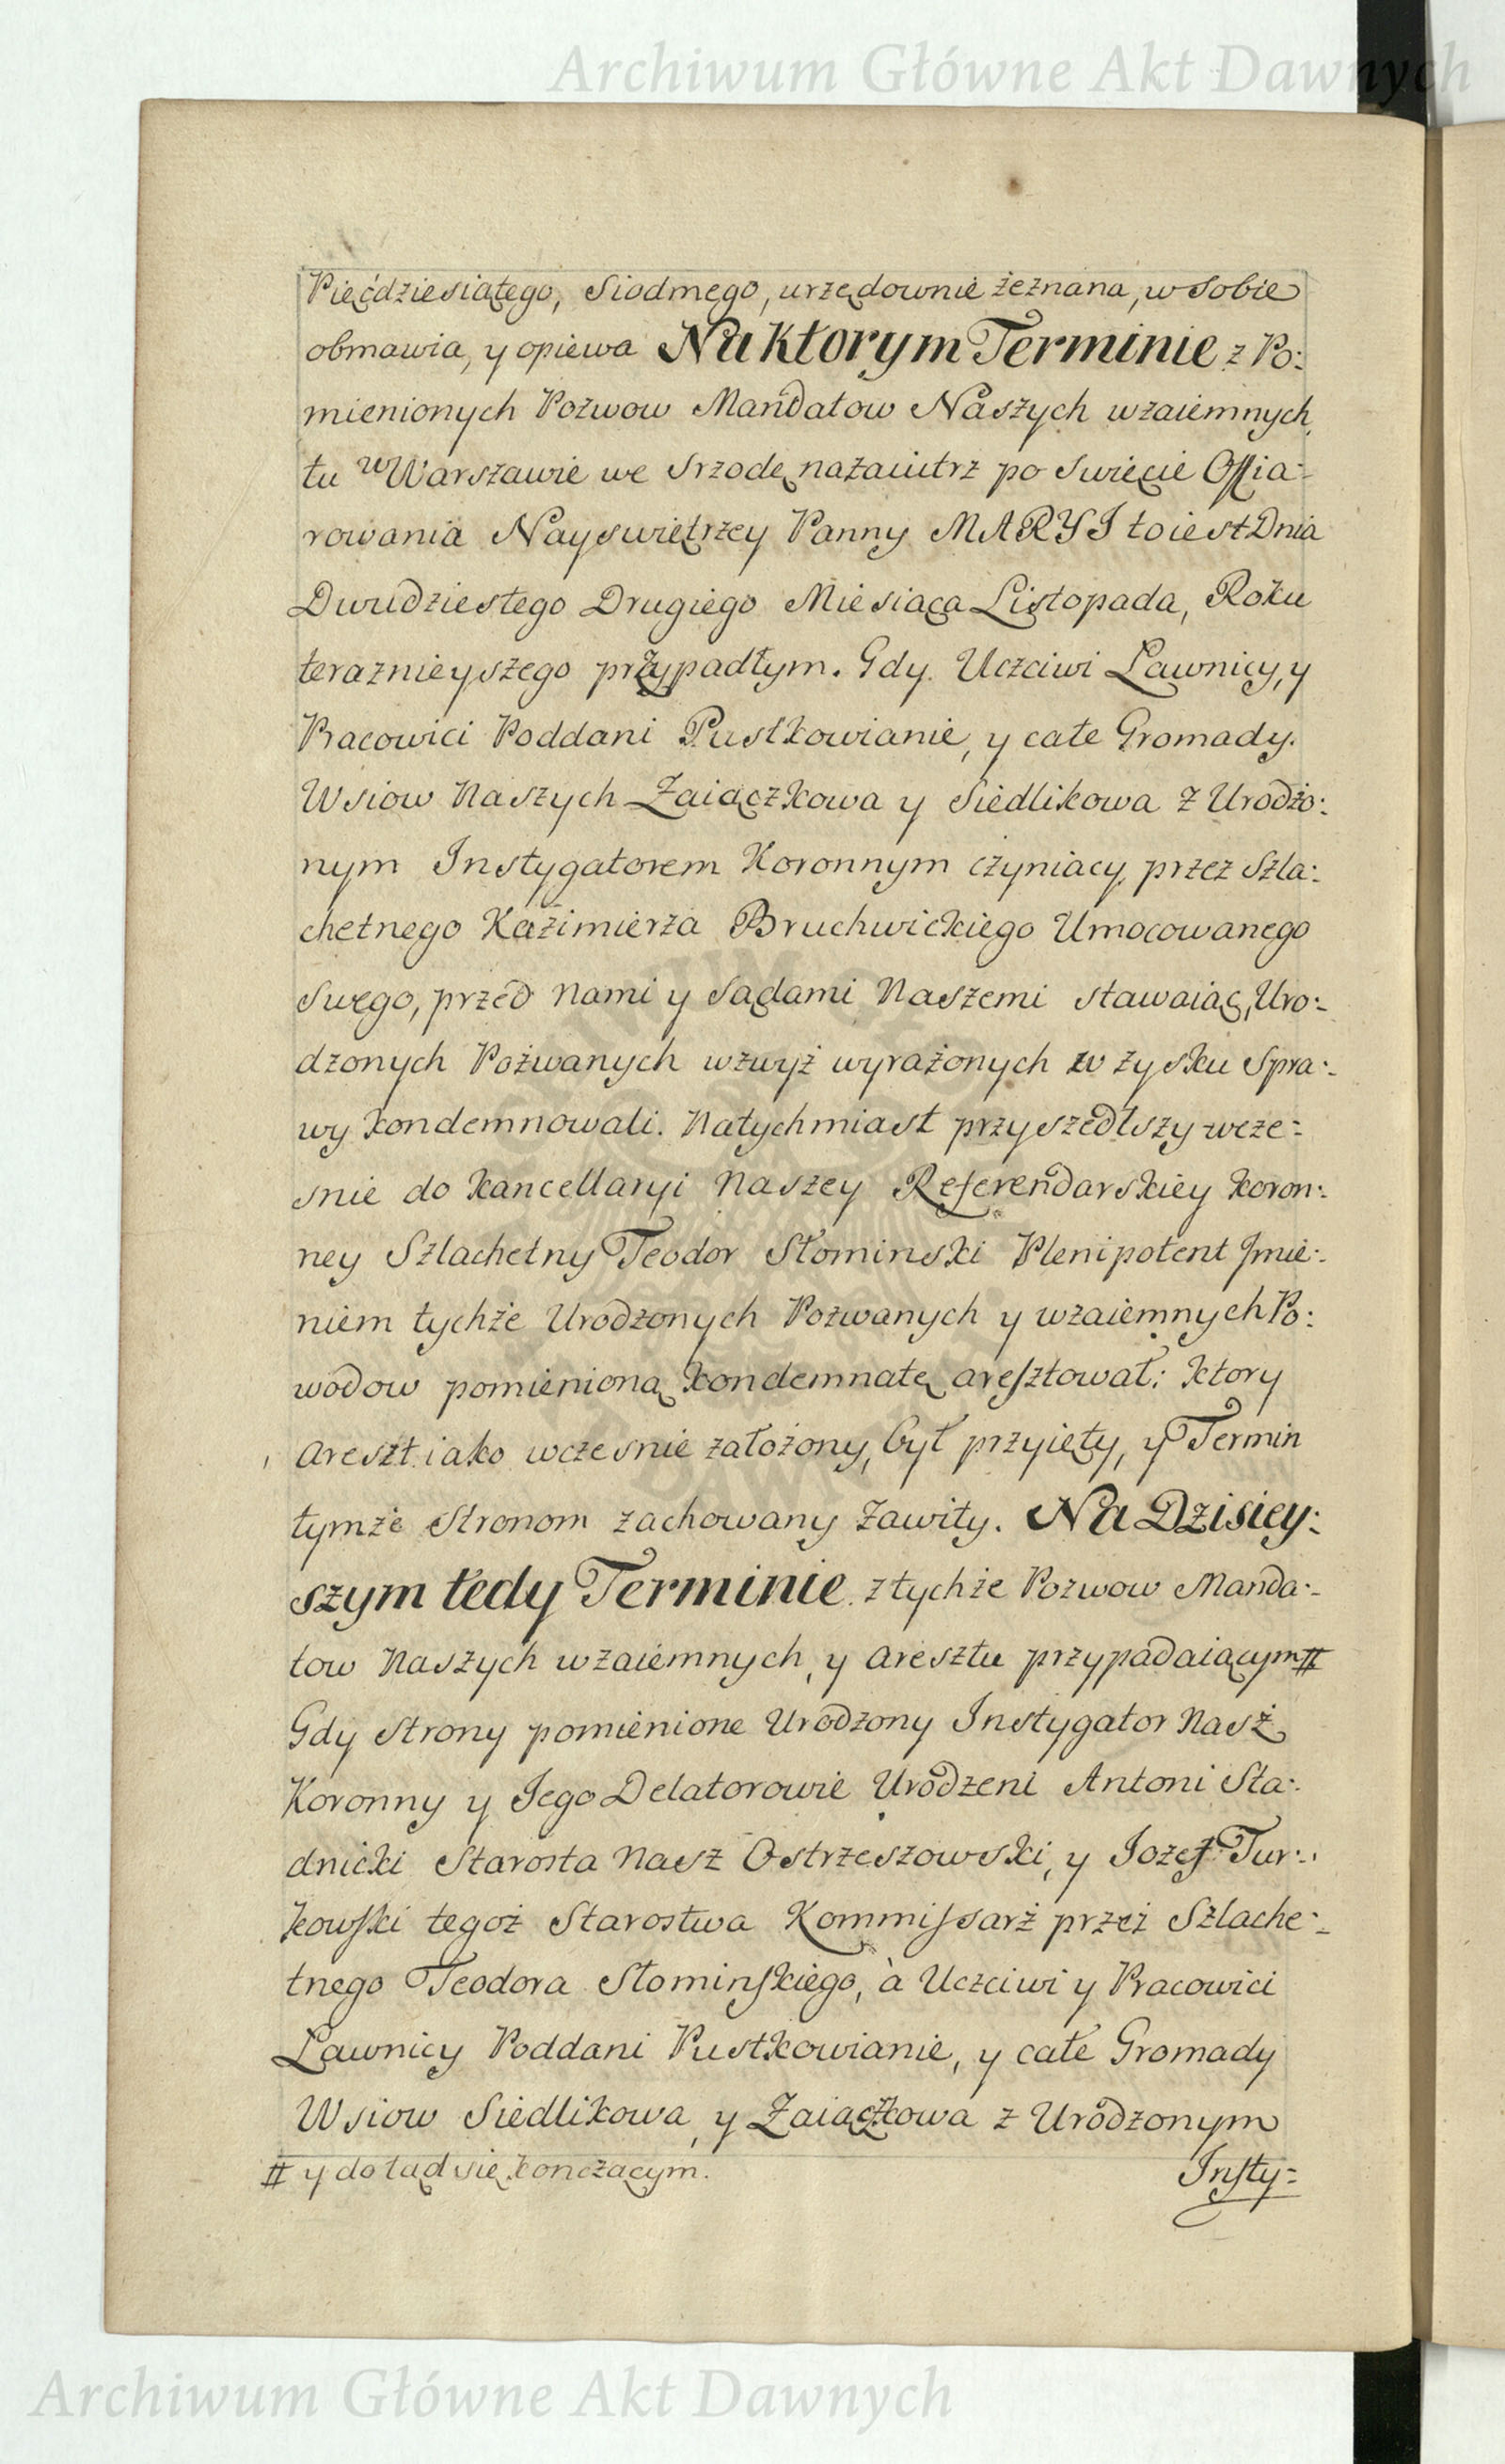 Archiwum Główne Akt Dawnych
Pięćdziesiątego, Siodmego, urzędownie żeznana, w sobie
obmawia, y opiewa Na Ktorym Terminie z Po:
mienionych Pozwow Mandatow Naszych wzaiemnych,
tu w Warszawie we Srzodę nazaiutrz po Swięcie Offia-
rowania Nayswiętrzey Panny MARYI to iest Dnia
Dwudziestego Drugiego Miesiąca Listopada, Roku
teraznieyszego przypadłym. Gdy Uczciwi Ławnicy, y
Pracowici Poddani Pustkowianie, y całe Gromady.
Wsiow Naszych Zaiączkowa y Siedlikowa z Urodzo:
nym Instygatorem Koronnym czyniący, przez Szla:
chetnego Kazimierza Bruchwickiego Umocowanego
Swego, przed Nami y Sądami Naszemi stawaiąc, Uro:
dzonych Pozwanych wzwyż wyrażonych w zysku Spra:
wy kondemnowali. Natychmiast przyszedłszy wcze:
snie do Kancellaryi Naszey Referendarskiey Koron:
ney Szlachetny Teodor Słominski Plenipotent Jmie:
niem tychże Urodzonych Pozwanych y wzaiemnych Po:
wodow pomienioną kondemnatę aresztował: Ktory
Areszt iako wczesnie założony, był przyięty, y Termin
tymże Stronom zachowany Zawity. Na Dzisiey:
szym tedy Terminie z tychże Pozwow Manda:
tow Naszych wzaiemnych, y Aresztu przypadaiącym #
Gdy Strony pomienione Urodzony Instygator Nasz
Koronny y Jego Delatorowie Urodzeni Antoni Sta:
dnicki Starosta Nasz Ostrzeszowski, y Iozef Tur:
kowski tegoż Starostwa Kommissarż przez Szlache:
tnego Teodora Słominskiego, à Uczciwi y Pracowici
Ławnicy Poddani Pustkowianie, y całe Gromady
Wsiow Siedlikowa, y Zaiączkowa z Urodzonym
# y dotąd się kończącym. Insty:
Archiwum Główne Akt Dawnych